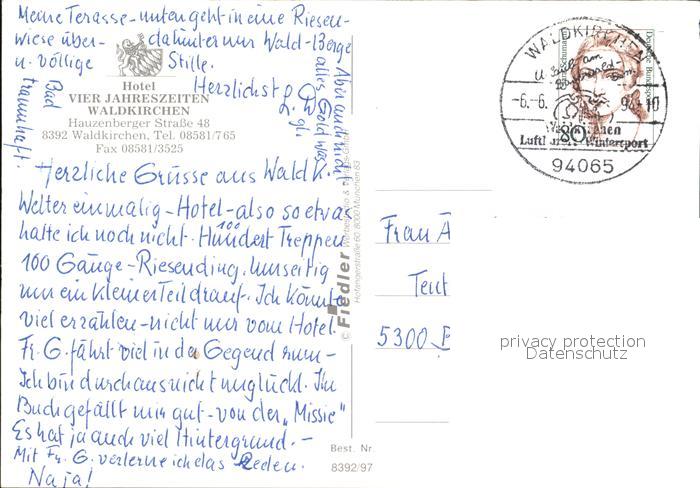 Meine Terasse - unten geht in eine Riesen-
wiese über - dahinter nur Wald - Berge
u. völlige Stille.
Herzlichst
Bad traumhaft.
Aber auch nicht
alles Gold was
gl.
Hotel
VIER JAHRESZEITEN
WALDKIRCHEN
Hauzenberger Straße 48
8392 Waldkirchen, Tel. 08581/765
Fax 08581/3525
Herzliche Grüsse aus Waldk.
Wetter einmalig - Hotel - also so etwas
hatte ich noch nicht. Hundert Treppen
100
100 Gänge - Riesending. Umseitig
nur ein kleiner Teil drauf. Ich könnte
viel erzählen - nicht nur vom Hotel.
Fr. G. fährt viel in der Gegend rum -
Ich bin durchaus nicht unglückl. Ihr
Buch gefällt mir gut - von der „Missie"
Es hat ja auch viel Hintergrund. -
Mit Fr. G. verlerne ich das Reden.
Na ja!
© Fiedler
Hofangerstraße 60 · 8000 München 83
Best. Nr.
8392/97
WALDKIRCHEN
-6.-6. 94-10
Luftk Wintersport
94065
Deutsche Bundespost
80
Frau A
Tent
5300 B
privacy protection
Datenschutz